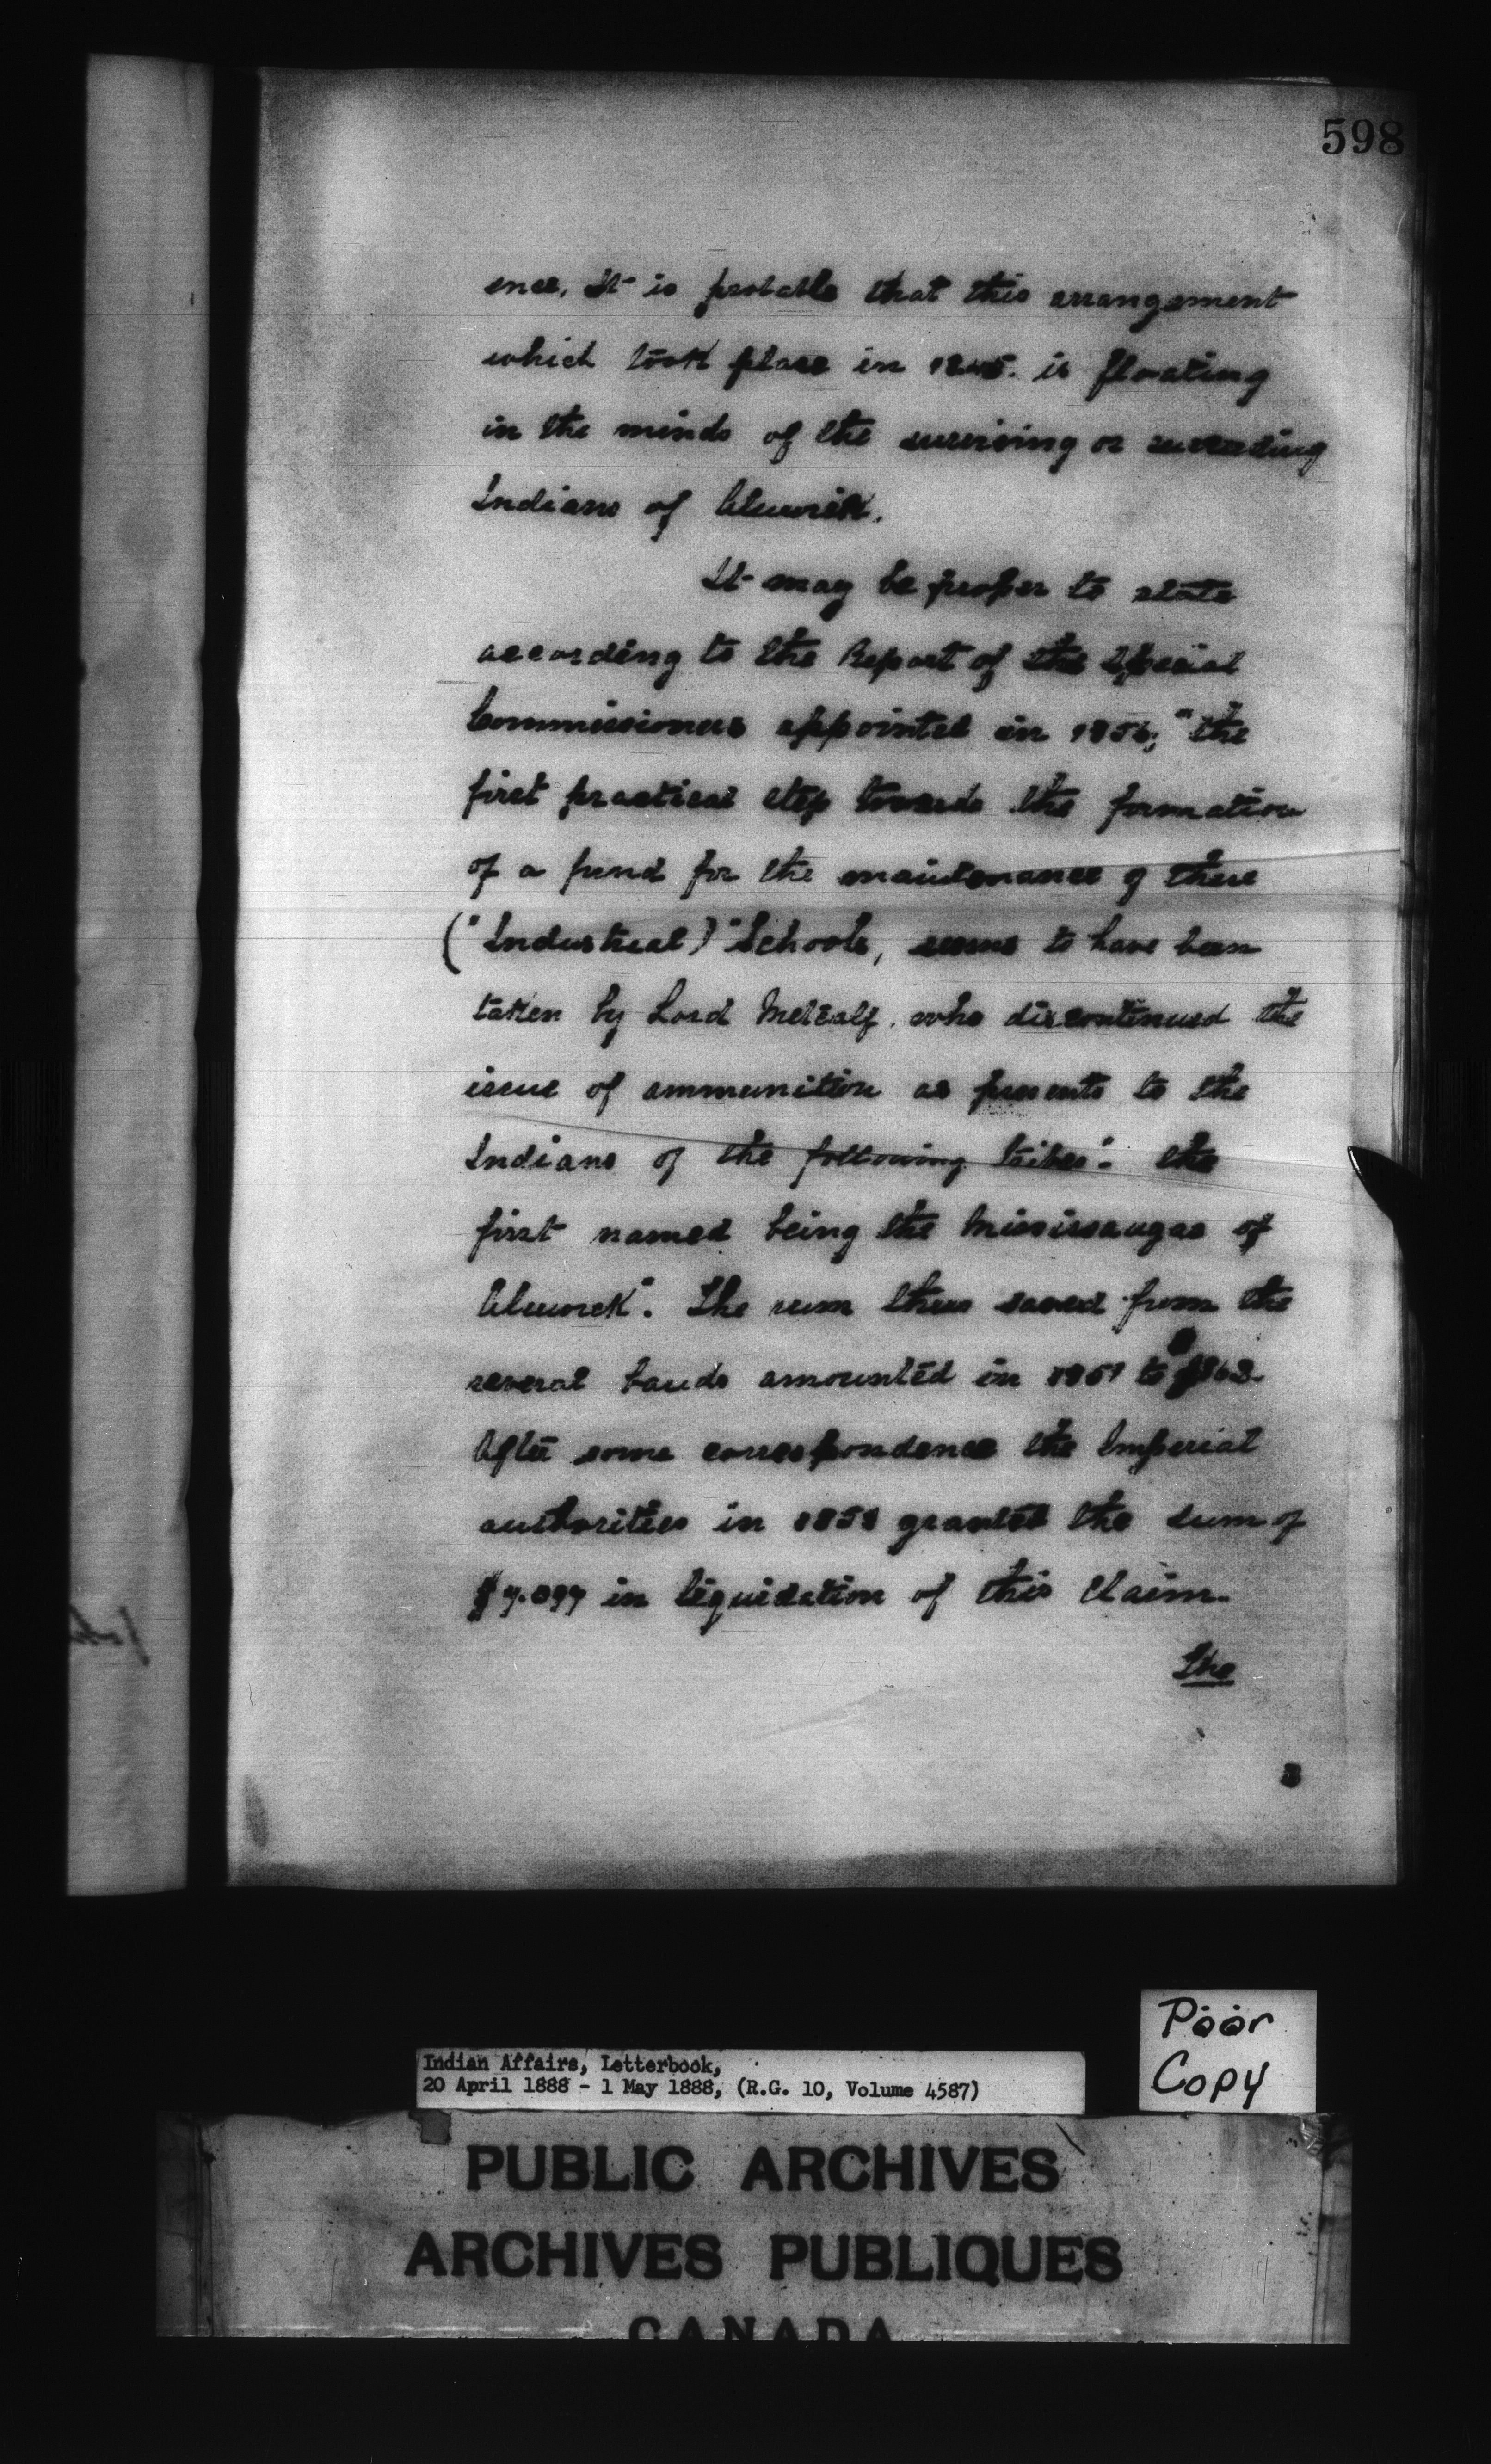 598
ence, It is probable that this arrangement
which took place in 1845. is floating
in the minds of the surviving or succeeding
Indians of Alnwick.
It may be proper to state
according to the Report of the Special
Commissioners appointed in 1856; "the
first practical step towards the formation
of a fund for the maintenance of these
("Industrial)" Schools, seems to have been
taken by Lord Metcalf. who discontinued the
issue of ammunition as presents to the
Indians of the following tribes": the
first named being the Mississaugas of
Alnwick". The sum thus saved from the
several bands amounted in 1851 to
After some correspondence the Imperial
authorities in granted the sum of
in liquidation of this Claim.
The
Indian Affairs, Letterbook,
20 April 1888 - 1 May 1888, (R.G. 10, Volume 4587)
Poor
Copy
PUBLIC ARCHIVES
ARCHIVES PUBLIQUES
CANADA